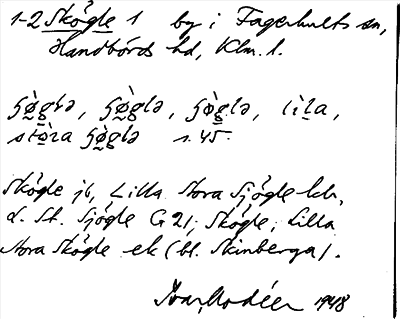 1-2 Skögle 1 by i Fagerhults sn,
Handbörds hd, Klm. l.
lìla,
stòra s. 45.
Skögle jb, Lilla Stora Sjögle kb,
L. St. Sjögle G 21; Skögle, Lilla
Stora Skögle ek (bl. Skinberga).
Ivar Modéer 1948